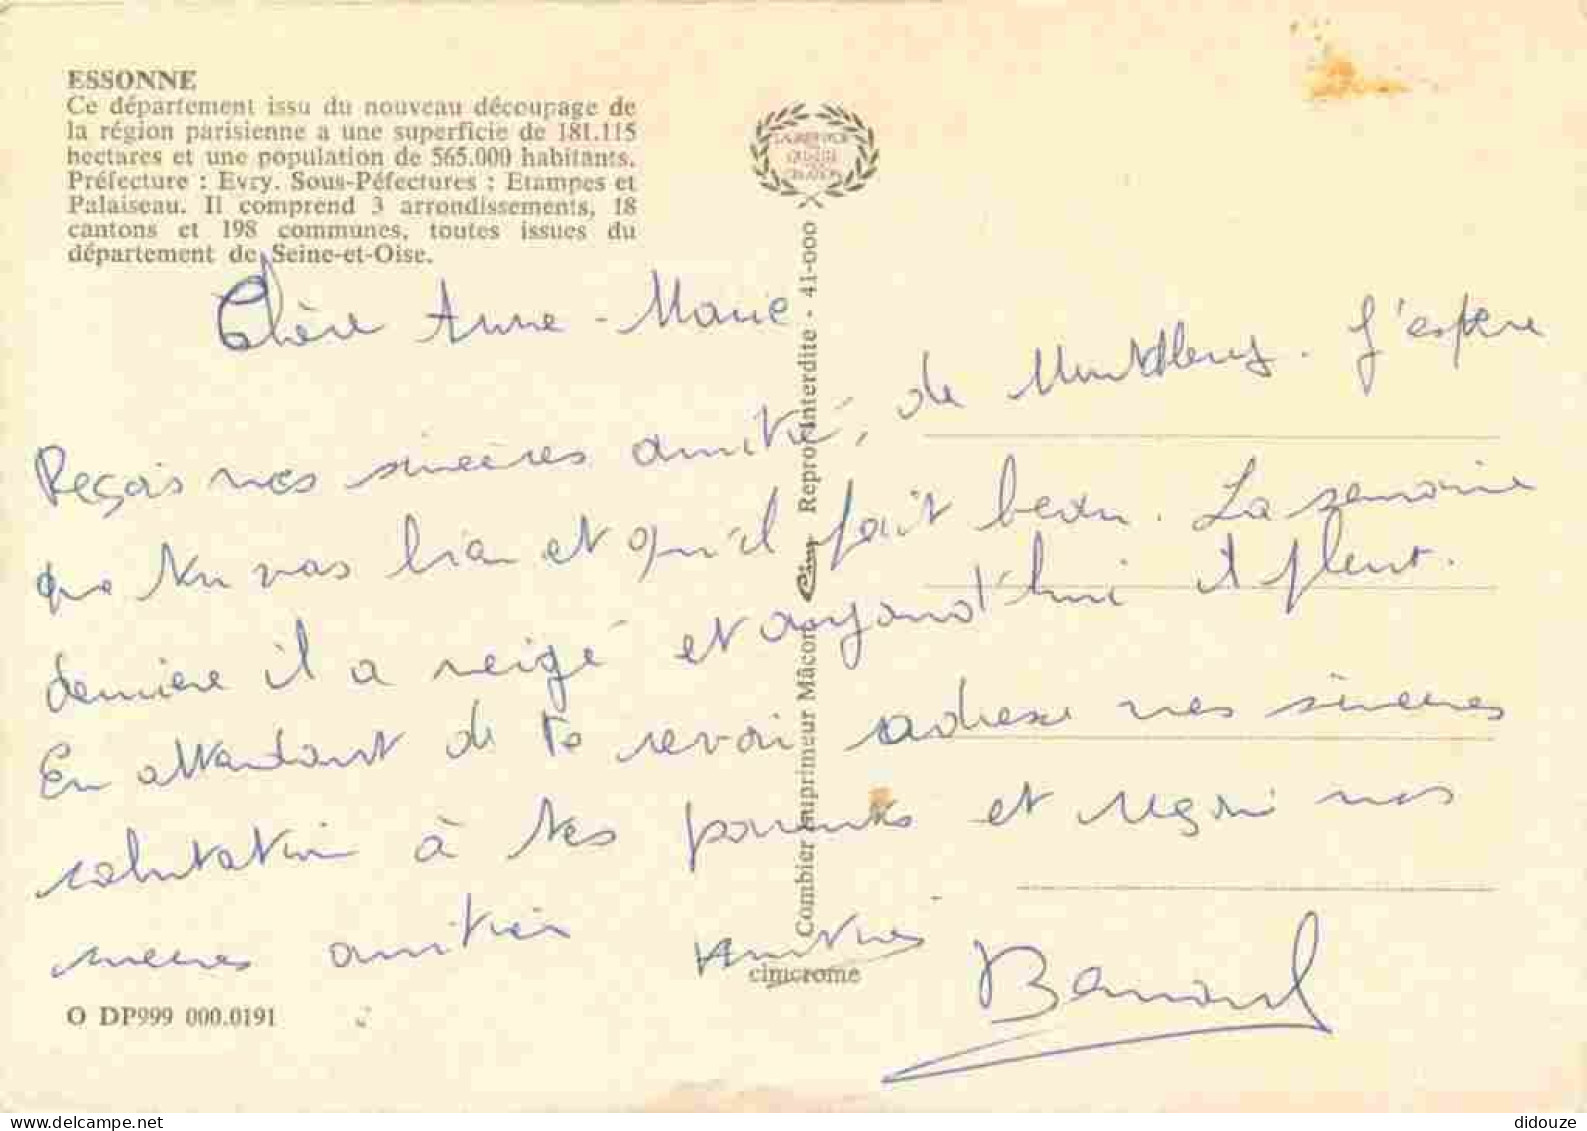 ESSONNE
Ce département issu du nouveau découpage de
la région parisienne a une superficie de 181.115
hectares et une population de 565.000 habitants.
Préfecture : Evry. Sous-Péfectures : Etampes et
Palaiseau. Il comprend 3 arrondissements, 18
cantons et 198 communes, toutes issues du
département de Seine-et-Oise.
Chère Anne-Marie
Reçois nos sincères amitié, de Montlhery. J'espère
que tu vas bien et qu'il fait beau. La semaine
dernière il a neigé et aujourd'hui il pleut.
En attendant de te revoir adresse nos sincères
salutation à tes parents et reçoi nos
amitiés
amitiés
Bernard
Combier imprimeur Mâcon Cim Reproᵒⁿ Interdite - 41-000
cimcrome
O DP999 000.0191
didouze